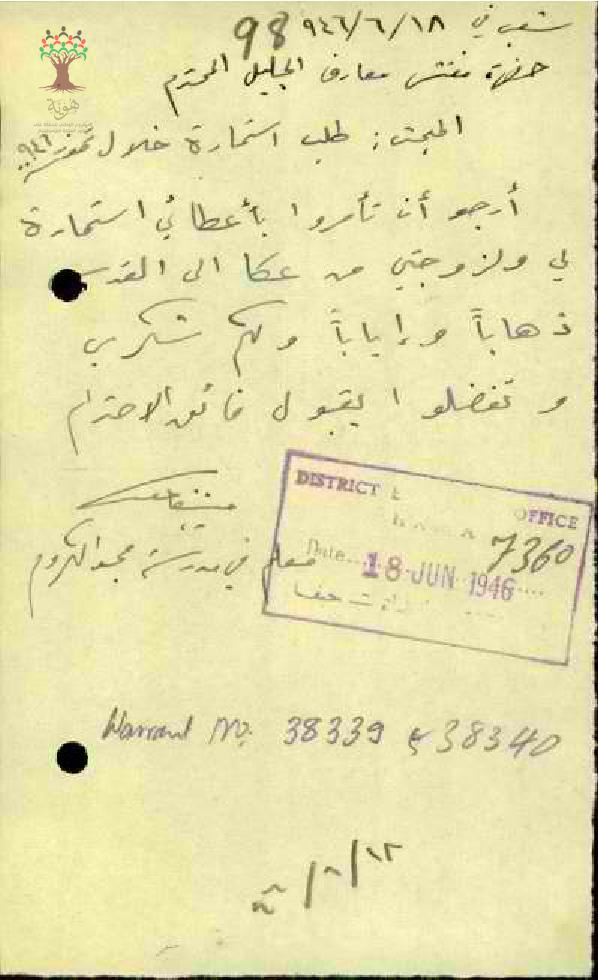 شعب في ١٨/٦/٩٤٦
98
حضرة مفتش معارف الجليل المحترم
المبحث : طلب استمارة خلال تموز ٩٤٦
أرجو أن تأمروا بأعطائي استمارة
لي ولزوجتي من عكا الى القدس
ذهاباً وإياباً ولكم شكري
وتفضلوا بقبول فائق الاحترام
معلم في مدرسة مجد الكروم
DISTRICT OFFICE
7360
Date 18 JUN 1946
حيفا
Warrant No. 38339 & 38340
هوية